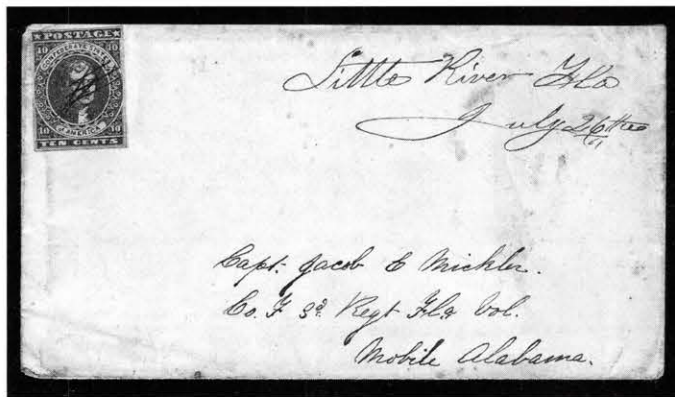 ★POSTAGE★
10 10
CONFEDERATE STATES
OF AMERICA
10 10
TEN CENTS
Little River Fla
July 26th
Capt. Jacob E Mickler.
Co. F 3d. Regt Fla Vol.
Mobile Alabama.